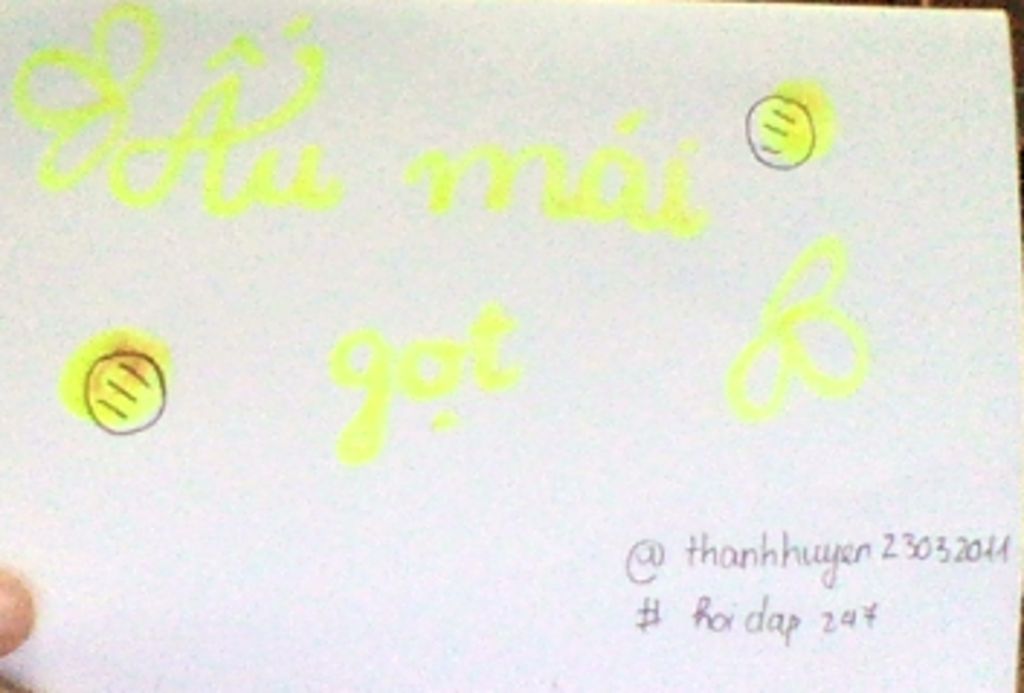 Ấu mái
gọt
@ thanhhuyen23032011
# hoidap 247